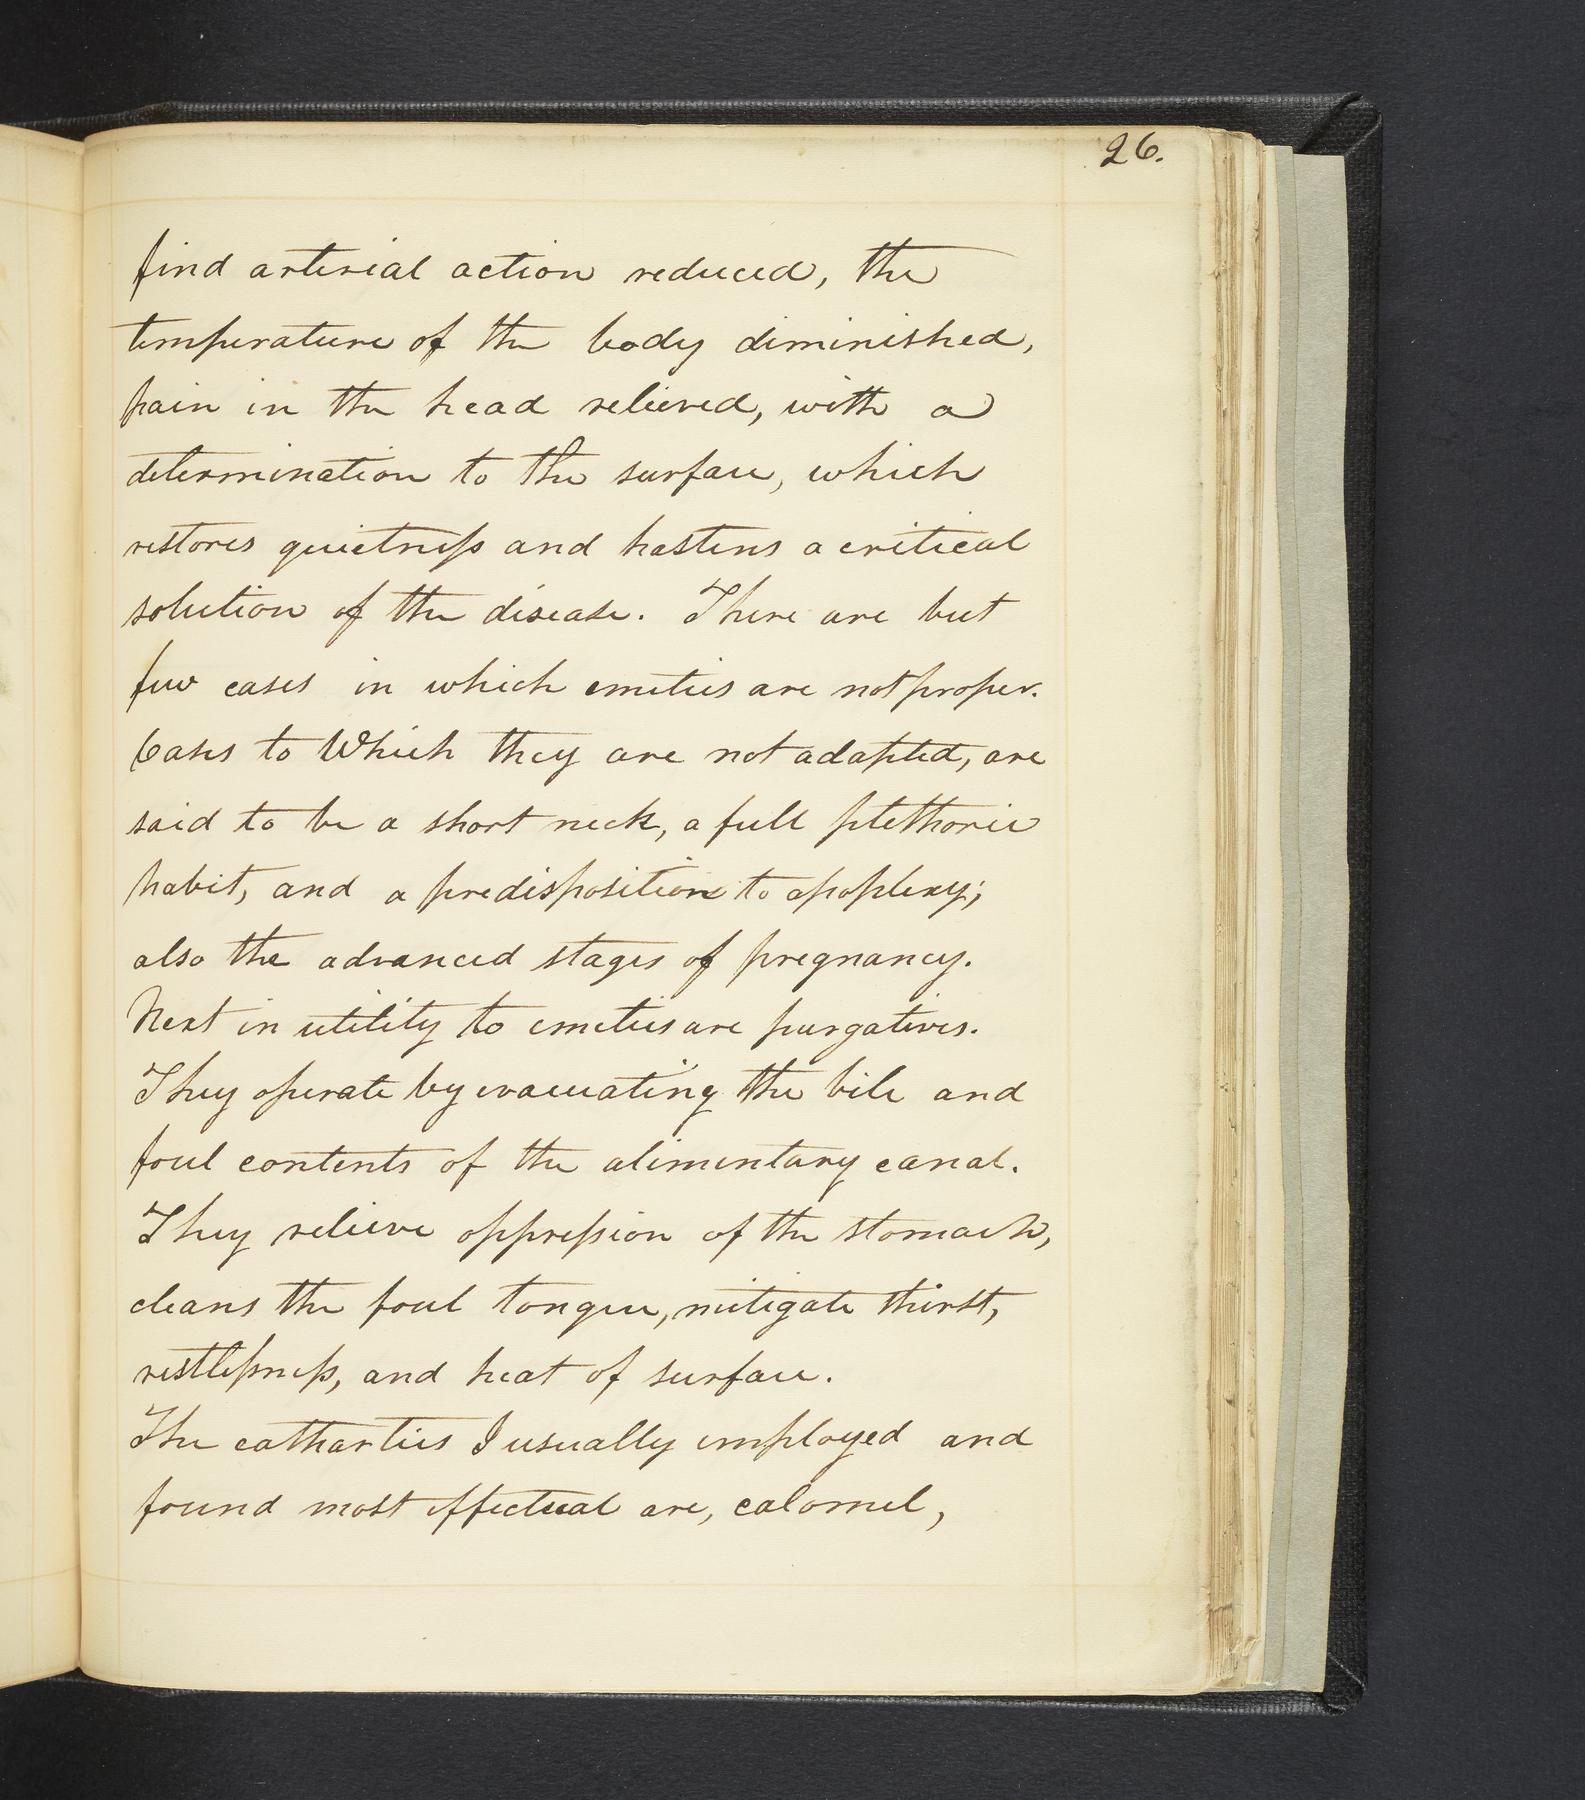 26.
find arterial action reduced, the
temperature of the body diminished,
pain in the head relieved, with a
determination to the surface, which
restores quietness and hastens a critical
solution of the disease. There are but
few cases in which emetics are not proper.
Cases to Which they are not adapted, are
said to be a short neck, a full plethoric
habit, and a predisposition to apoplexy;
also the advanced stages of pregnancy.
Next in utility to emetics are purgatives.
They operate by evacuating the bile and
foul contents of the alimentary canal.
They relieve oppression of the stomach,
cleans the foul tongue, mitigate thirst,
restlessness, and heat of surface.
The cathartics I usually employed and
found most effectual are, calomel,